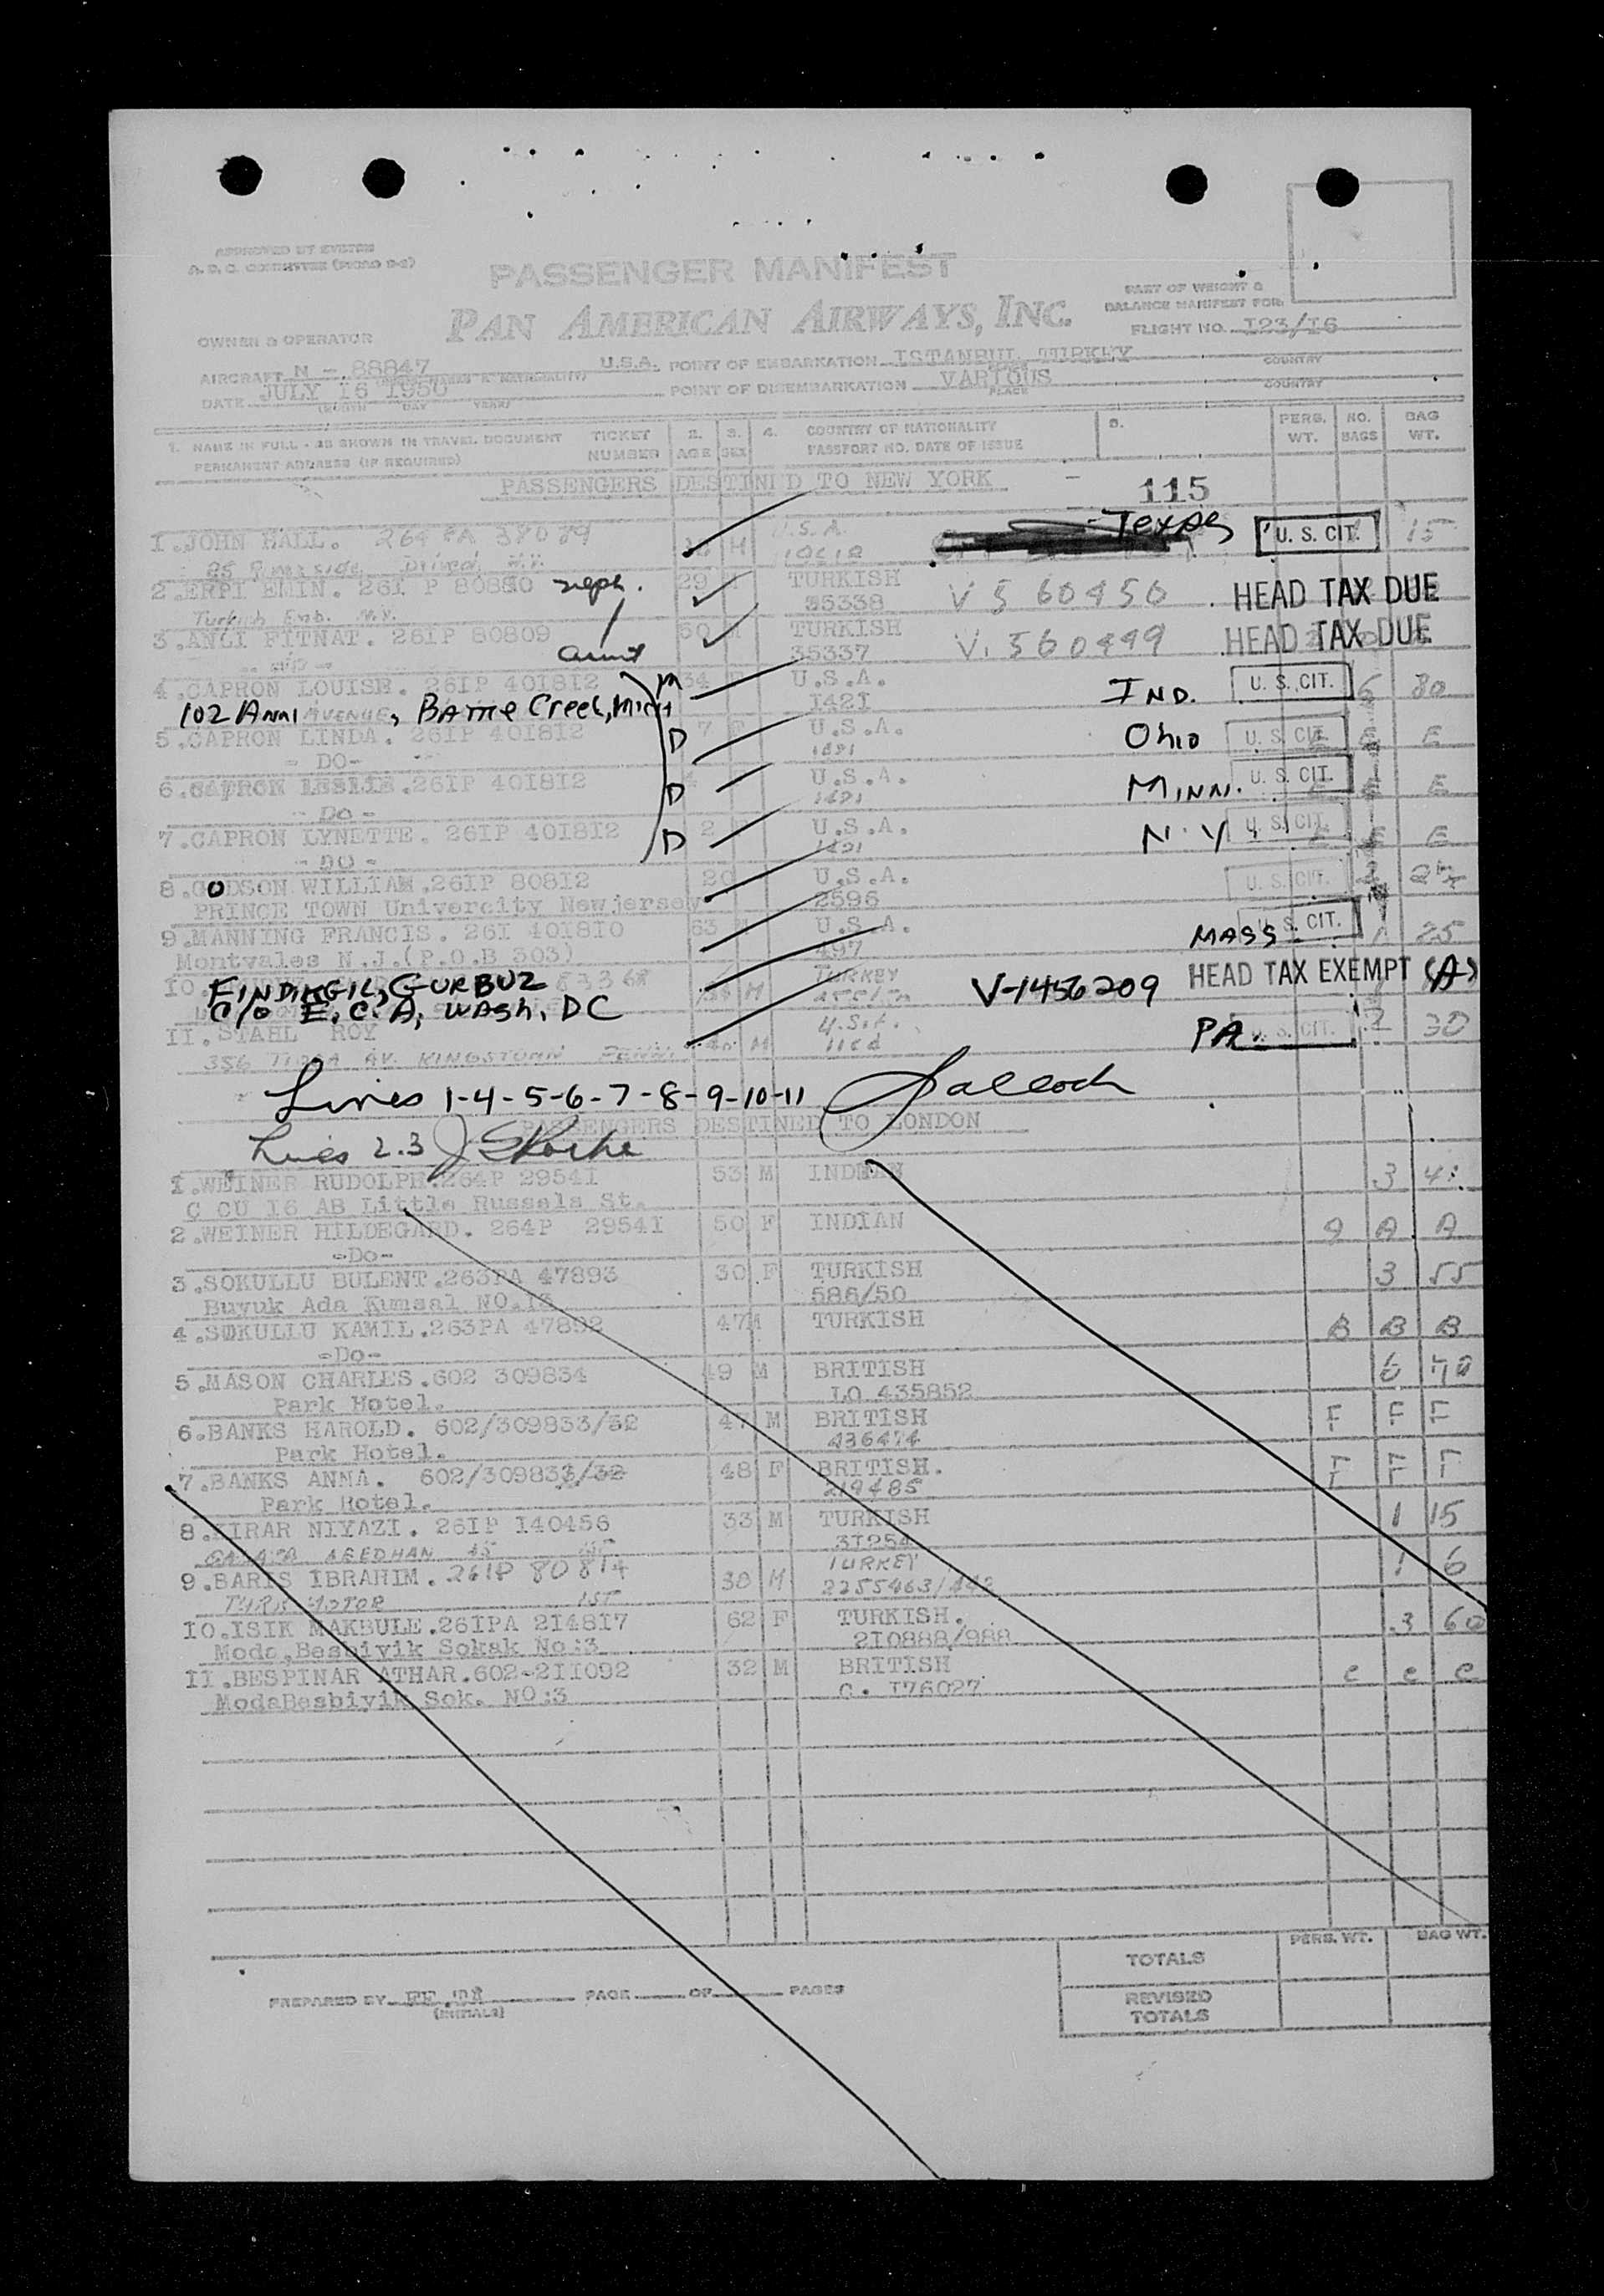 APPROVED BY SYSTEM
PASSENGER MANIFEST
PAN AMERICAN AIRWAYS, INC.
PART OF WEIGHT &
BALANCE MANIFEST FOR:
FLIGHT NO. I23/I6
OWNER & OPERATOR
AIRCRAFT N - 88847 U.S.A. POINT OF EMBARKATION ISTANBUL TURKEY COUNTRY
DATE JULY I6 I950 POINT OF DISEMBARKATION VARIOUS PLACE COUNTRY
(MONTH DAY YEAR)
1. NAME IN FULL - AS SHOWN IN TRAVEL DOCUMENT TICKET 2. 3. 4. COUNTRY OF NATIONALITY 5. PERS. NO. BAG
PERMANENT ADDRESS (IF REQUIRED) NUMBER AGE SEX PASSPORT NO. DATE OF ISSUE WT. BAGS WT.
PASSENGERS DESTINED TO NEW YORK - 115
I.JOHN HALL. M U.S.A. Texas U. S. CIT. 15
2.ERPI EMIN. 26I P 80810 neph. 29 TURKISH V 560450 HEAD TAX DUE
Turkish Emb. 35338
3.ANLI FITNAT. 26IP 80809 60 TURKISH V. 560449 HEAD TAX DUE
aunt 35337
4.CAPRON LOUISE. 26IP 40I8I2 M 34 U.S.A. IND. U. S. CIT. 6 80
102 Ann AVENUE, Battle Creek, Mich I42I
5.CAPRON LINDA. 26IP 40I8I2 D 7 U.S.A. Ohio U. S. CIT. E
- DO- 1421
6.CAPRON LESLIE.26IP 40I8I2 D 4 U.S.A. MINN. U. S. CIT. E E
- DO - 1421
7.CAPRON LYNETTE. 26IP 40I8I2 D 2 U.S.A. N.Y U. S. CIT. E E
- DO - 1421
8.GODSON WILLIAM.26IP 808I2 20 U.S.A. U. S. CIT.
PRINCE TOWN Univercity Newjersey. 2596
9.MANNING FRANCIS. 26I 40I8I0 63 M U.S.A. MASS. U. S. CIT. 1 25
Montvales N.J.(P.O.B 303) 497
IO. FINDIKGIL, GURBUZ M TURKEY V-1456209 HEAD TAX EXEMPT (A)
C/O E.C.A, WASH, DC
II.STAHL ROY 40 M U.S.A. PA. U. S. CIT. 2 30
AV. KINGSTOWN
Lines 1-4-5-6-7-8-9-10-11
PASSENGERS DESTINED TO LONDON
Lines 2.3
I.WEINER RUDOLPH.264P 2954I 53 M INDIAN 3
C CU I6 AB Little Russels St.
2.WEINER HILDEGARD. 264P 2954I 50 F INDIAN A A A
-Do-
3.SOKULLU BULENT.263PA 47893 30 F TURKISH 3 55
Buyuk Ada Kumsal NO.I3 586/50
4.SOKULLU KAMIL.263PA 47892 47 M TURKISH B B B
-Do-
5.MASON CHARLES.602 309834 49 M BRITISH 6 70
Park Hotel. LO 435852
6.BANKS HAROLD. 602/309833/32 47 M BRITISH F F F
Park Hotel. 436474
7.BANKS ANNA. 602/309833/32 48 F BRITISH. F F F
Park Hotel. 219485
8.KIRAR NIYAZI. 26IP I40456 33 M TURKISH 1 15
3I254
9.BARIS IBRAHIM. 261P 80814 38 M TURKEY 1 6
TURK MOTOR IST 2255463/442
IO.ISIK MAKBULE.26IPA 2I48I7 62 F TURKISH. 3 60
Moda,Besbiyik Sokak No:3 2I0888/988
II.BESPINAR ATHAR.602-2II092 32 M BRITISH C C C
ModaBesbiyik Sok. NO:3 C. I76027
PERS. WT. BAG WT.
TOTALS
PREPARED BY (INITIALS) PAGE OF PAGES
REVISED
TOTALS